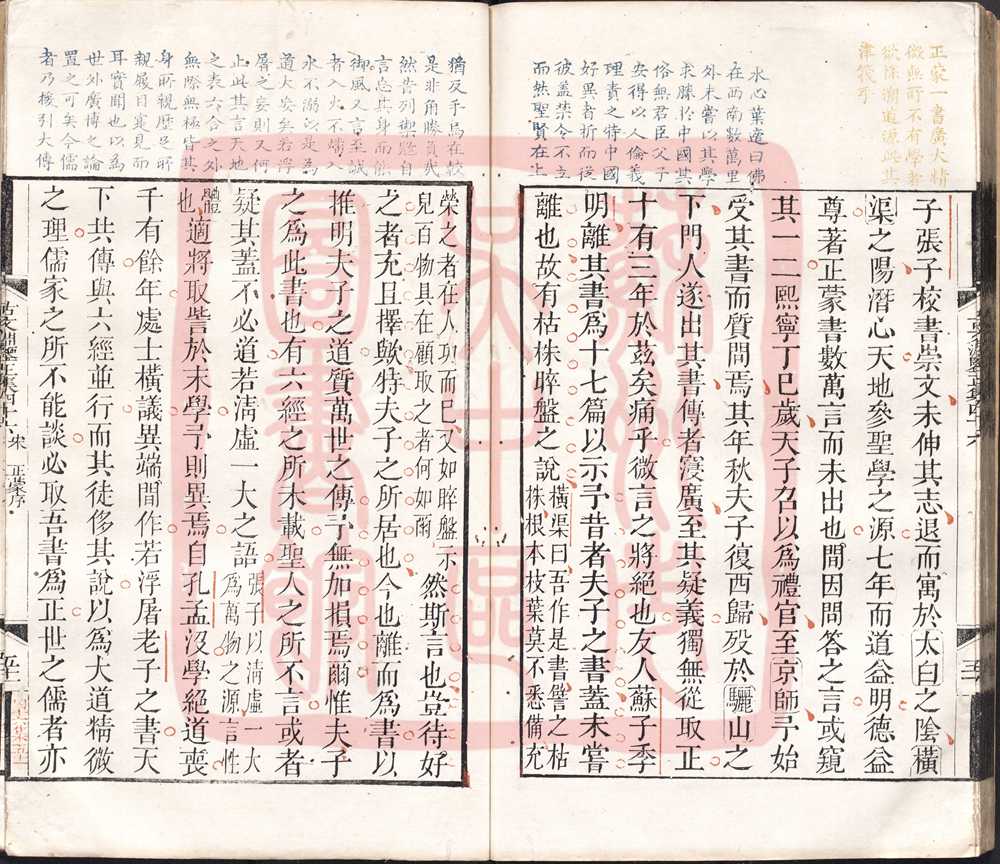 正蒙一書廣大精
微無所不有學者
欲徐溯道源此其
津筏乎
水心葉適曰佛
在西南數萬里
外未嘗以其學
求勝於中國其
俗無君臣父子
安得以人倫義
理責之待中國
好異者折而從
彼蓋禁令不立
而然聖賢在上
子張子校書崇文未伸其志退而寓於太白之陰橫
渠之陽潛心天地參聖學之源七年而道益明德益
尊著正蒙書數萬言而未出也間因問答之言或窺
其一二熙寧丁巳歲天子召以為禮官至京師予始
受其書而質問焉其年秋夫子復西歸歿於驪山之
下門人遂出其書傳者寖廣至其疑義獨無從取正
十有三年於茲矣痛乎微言之將絕也友人蘇子季
明離其書為十七篇以示予昔者夫子之書蓋未嘗
離也故有枯株晬盤之說橫渠曰吾作是書譬之枯
株根本枝葉莫不悉備充
猶反手焉在校
是非角勝負哉
然嘗列禦寇自
言忘其身而能
御風又言至誠
者入火不燔入
水不溺以是為
道大妄矣若浮
屠之妄則又何
止此其言天地
之表六合之外
無際無極皆其
身所視歷足所
親履目寔見而
耳實聞也以為
世外廣博之論
置之可矣今儒
者乃援引大傳
榮之者在人功而已又如晬盤示
兒百物具在顧取之者何如爾然斯言也豈待好
之者充且擇歟特夫子之所居也今也離而為書以
推明夫子之道質萬世之傳予無加損焉爾惟夫子
之為此書也有六經之所未載聖人之所不言或者
疑其蓋不必道若清虛一大之語張子以清虛一大
為萬物之源言性
體
也適將取訾於末學予則異焉自孔孟沒學絕道喪
千有餘年處士橫議異端間作若浮屠老子之書天
下共傳與六經並行而其徒侈其說以為大道精微
之理儒家之所不能談必取吾書為正世之儒者亦
宋 正蒙序